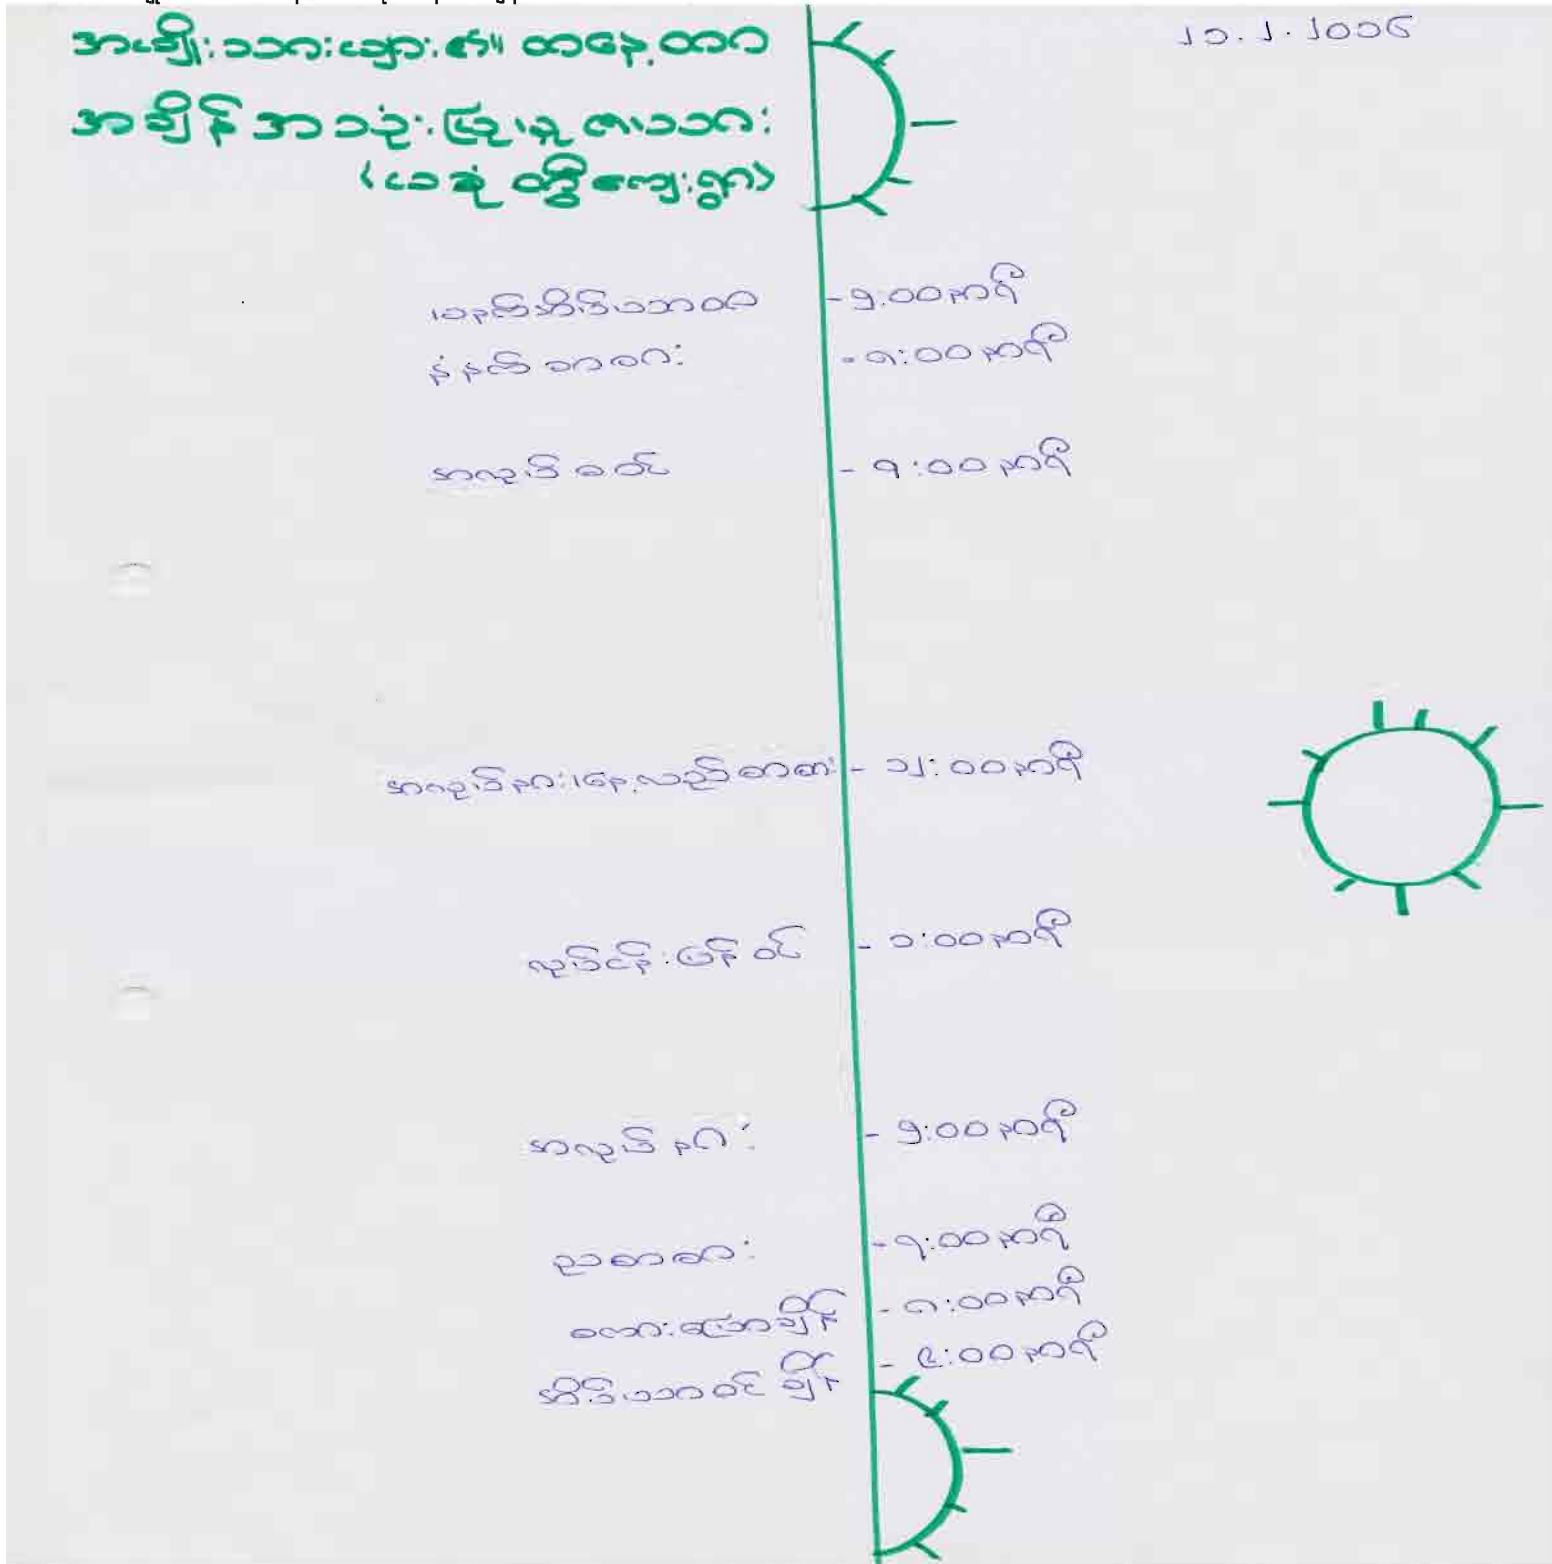 ၂၁.၂.၂၀၁၆
အမျိုးသားများ၏ တနေ့တာ
အချိန်အသုံးပြုမှု ဇယား
(မဆုံတွီကျေးရွာ)
မနက်အိပ်ယာထ - ၅:၀၀နာရီ
နံနက်စာစား - ၈:၀၀နာရီ
အလုပ်ဝင် - ၉:၀၀နာရီ
အလုပ်နား၊နေ့လည်စာစား - ၁၂:၀၀နာရီ
လုပ်ငန်းပြန်ဝင် - ၁:၀၀နာရီ
အလုပ်နား - ၅:၀၀နာရီ
ညစာစား - ၇:၀၀နာရီ
စကားပြောချိန် - ၈:၀၀နာရီ
အိပ်ယာဝင်ချိန် - ၉:၀၀နာရီ